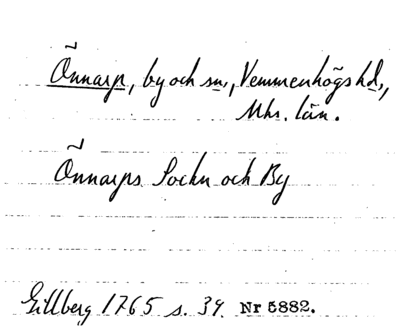 Önnarp, by och sn, Vemmenhögs hd.,
Mhs. län.
Önnarps Sockn och By
Gillberg 1765 s. 39. Nr 5882.